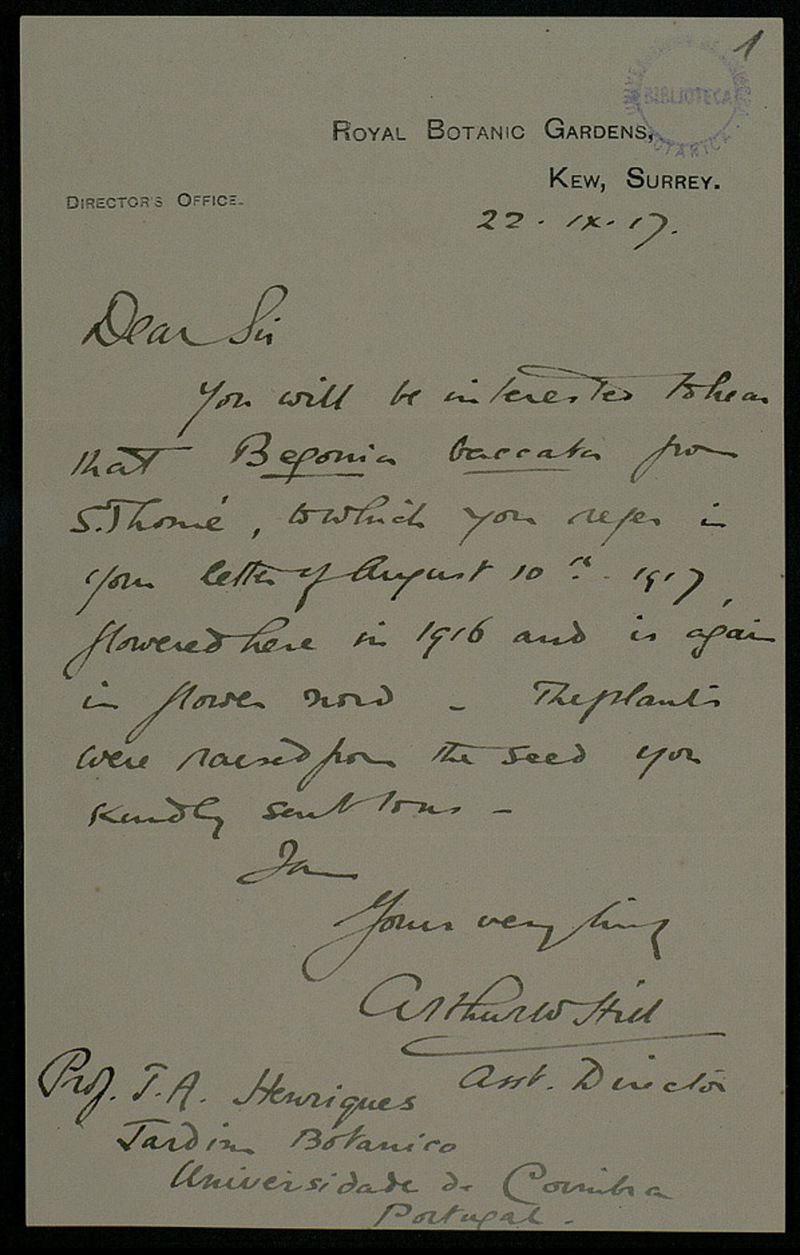 1
UNIVERSIDADE DE COIMBRA
BIBLIOTECA
BOTANICA
ROYAL BOTANIC GARDENS,
KEW, SURREY.
DIRECTOR'S OFFICE.
22. IX. 17.
Dear Sir
You will be interested to hear
that Begonia baccata from
S. Thomé, to which you refer in
your letter of August 10th. 1917,
flowered here in 1916 and is again
in flower now - The plants
were raised from the seed you
kindly sent to us -
I am
Yours very truly
Arthur W Hill
Asst. Director
Prof. J. A. Henriques
Jardim Botanico
Universidade de Coimbra
Portugal.